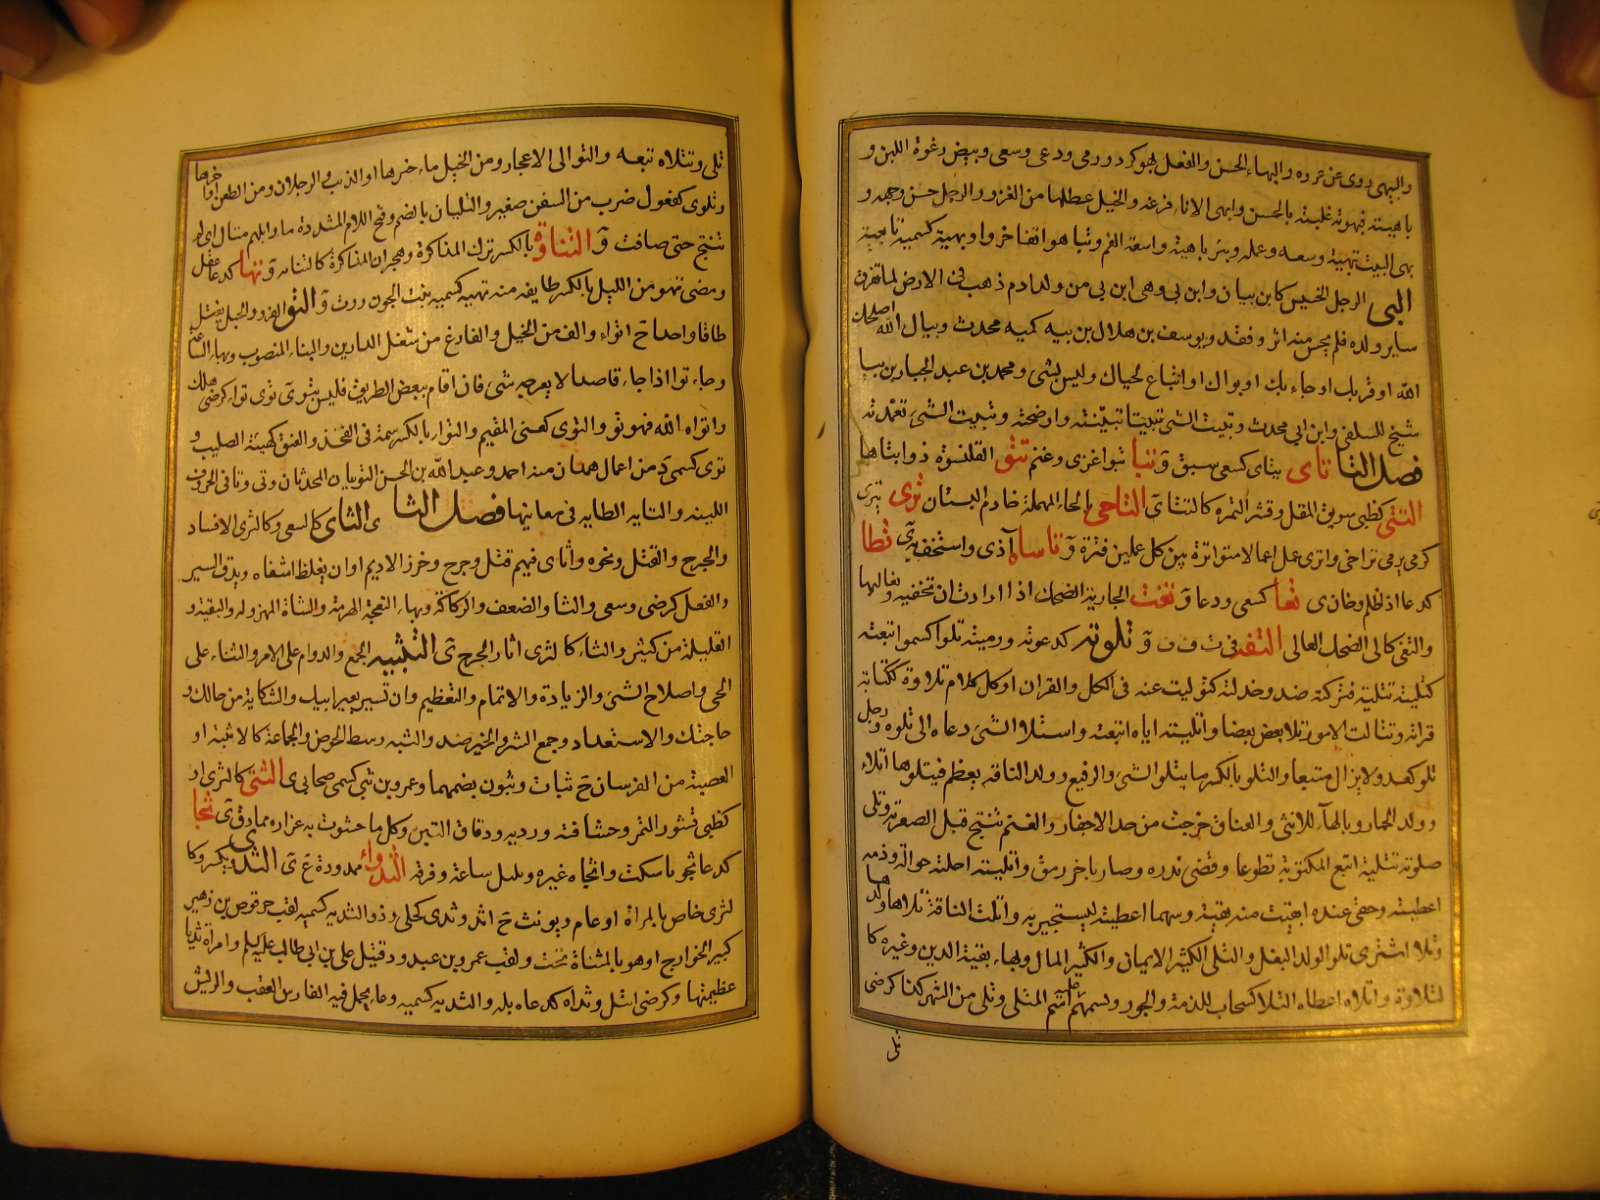 والبهى ذوى عن عروه والبهاء الحسن والفعل بهو كرد ورمى ودعى وسعى وبيض رغوة اللبن و
باهيته فبهوته غلبته بالحسن وابهى الاناء فرغه والخيل عطلها من الغزو والرجل حسن وجهه و
بهى البيت تبهية وسعه وعمله وبئر باهية واسعة الفم وتباهوا تفاخروا وبهية كسمية تابعية
البى الرجل الخسيس كابن بيان وابن بى وهى ابن بى من ولد ادم ذهب فى الارض لما تفرق
ساير ولده فلم يحس منه اثر وفقد ويوسف بن هلال بن بيه كميه محدث وبياك الله اضحكك
الله او قربك او جاء بك او بواك او اتباع لحياك وليس بشى ومحمد بن عبد الجبار بن بيا
شيخ للسلفى وابن ابى محدث وبييت الشى تبييتا تبيّنته واوضحته وتبييت الشئ تعمدته
فصل التا تاى يتاى كسعى سبق و تبا تبوا غزى وغنم تتو القلنسوة ذوابتاها
التتى كظبى سويق المقل وقشر التمرة كالتتاى التاحى بالحاء المهملة خادم البستان ترى يترى
كرمى يرمى تراخى واترى عمل اعمالا متواترة بين كل عملين فترة و تاساه آذى واستخف به ى تطا
كدعا اذ ظلم وخان ى تعا كسعى ودعا و تغت الجارية الضحك اذا ارادت ان تخفيه وتغالبها
والتغى كالى الضحك العالى التفه فى ت ف ف و تلوته كدعوته ورميته تلوا كسموا تبعته
كتليته تتلية فتركته ضد وخذلته كتوليت عنه فى الكل والقران او كل كلام تلاوة ككتابة
قراته وتتالت الامور تلا بعض بعضا واتليته اياه اتبعته واستتلا الشئ دعاه الى تلوه ورجل
تلو كعدو لا يزال متبعا والتلو بالكسر ما يتلو الشئ والرفيع وولد الناقة يعظم فيتلوها اتلاء
وولد الحمار وبالهاء للانثى والعناق خرجت من حد الاجفار والغنم تنتج قبل الصفرية وتلى
صلوته تتلية اتبع المكتوبة تطوعا وقضى نذره وصار باخر رمق واتليته احلته حوالة وذمة
اعطيته وحقى عنده ابقيت منه بقية وسهما اعطيته ليستجير به واتلت الناقة تلاها ولدها
وتلا اشترى تلو الولد البغل والتلى الكثير الايمان والكثير المال وبهاء بقية الدين وغيره كا
لتلاوة واتلاه اعطاه التلا كسحاب للذمة والجور وسهم عليه اسم المتلى وتلى من الشهر كذا كرضى
تلى
تلى وتتلاه تتبعه والتوالى الاعجاز ومن الخيل ماء خرها او الذنب والرجلان ومن الظعن اواخرها
وتلوى كفعول ضرب من السفن صغير والتليان بالضم وفتح اللام المشددة ما وابلهم متال اى لم
تنتج حتى صافت و التتاوة بالكسر ترك المذاكرة وهجران المذاكرة كالتنايه و تها كدعا غفل
ومضى تهو من الليل بالكسر طايفه منه تهيه كسميه بنت الجون روت و التو الفرد والحبل يفتل
طاقا واحدا ح اتواء والف من الخيل والفارغ من شغل الدارين والبناء المنصوب وبهاء الساعة
وجاء توا اذا جاء قاصدا لا يعرجه شى فان اقام ببعض الطريق فليس بتو ى توى تواء كرضى هلك
واتواه الله فهو تو والتوى كغنى المقيم والتواء بالكسر سمة فى الفخذ والعنق كهيئة الصليب و
توى كسمى د من اعمال همدان منه احمد وعبد الله بن الحسن التويان المحدثان وتى وتا فى الحروف
اللينه والتايه الطايه فى معانيها فصل الثا ى الثاى كالسعى وكالثرى الافساد
والجرح والقتل ونحوه واثاى فيهم قتل وجرح وخرز الاديم او ان يغلظ اشفاه ويدق السير
والفعل كرضى وسعى والثا والضعف والركاكة وبهاء النعجة الهرمة والشاة المهزوله والبقية و
القليلة من كثير والثاء كالثرى اثار الجرح ى التثبيه الجمع والدوام على الامر والثناء على
الحى واصلاح الشئ والزيادة والاتمام والتعظيم وان تسير بسيرا بيك والشكاية من حالك و
حاجتك والاستعداد وجمع الشر والخير ضد والثبه وسط الحوض والجماعة كالاثبية او
العصبة من الفرسان ج ثبات وثبون بضمهما وعمرو بن ثبى كسمى صحابى ى الثتى كالثرى او
كظبى قشور التمر وحشافته ورديه ودقاق التبن وكل ما حشوت به غرارة مما دق ى ثجا
كدعا ثجوا سكت واثجاه غيره وبلبل ساعة وفرقه الثدواء ممدودة ع ى الثدى ويكسر وكا
لثرى خاص بالمراة او عام ويونث ح اثد وثدى كحلى وذو الثديه كسميه لقب حرقوص بن زهير
كبير الخوارج او هو بالمثناة تحت ولقب عمرو بن عبد ود قتيل على بن ابى طالب عليه السلم وامراة ثديا
عظيمتها وكرضى ابتل وثداه كدعاه بله والثديه كسميه وعاء يحمل فيه الفارس العقب والريش